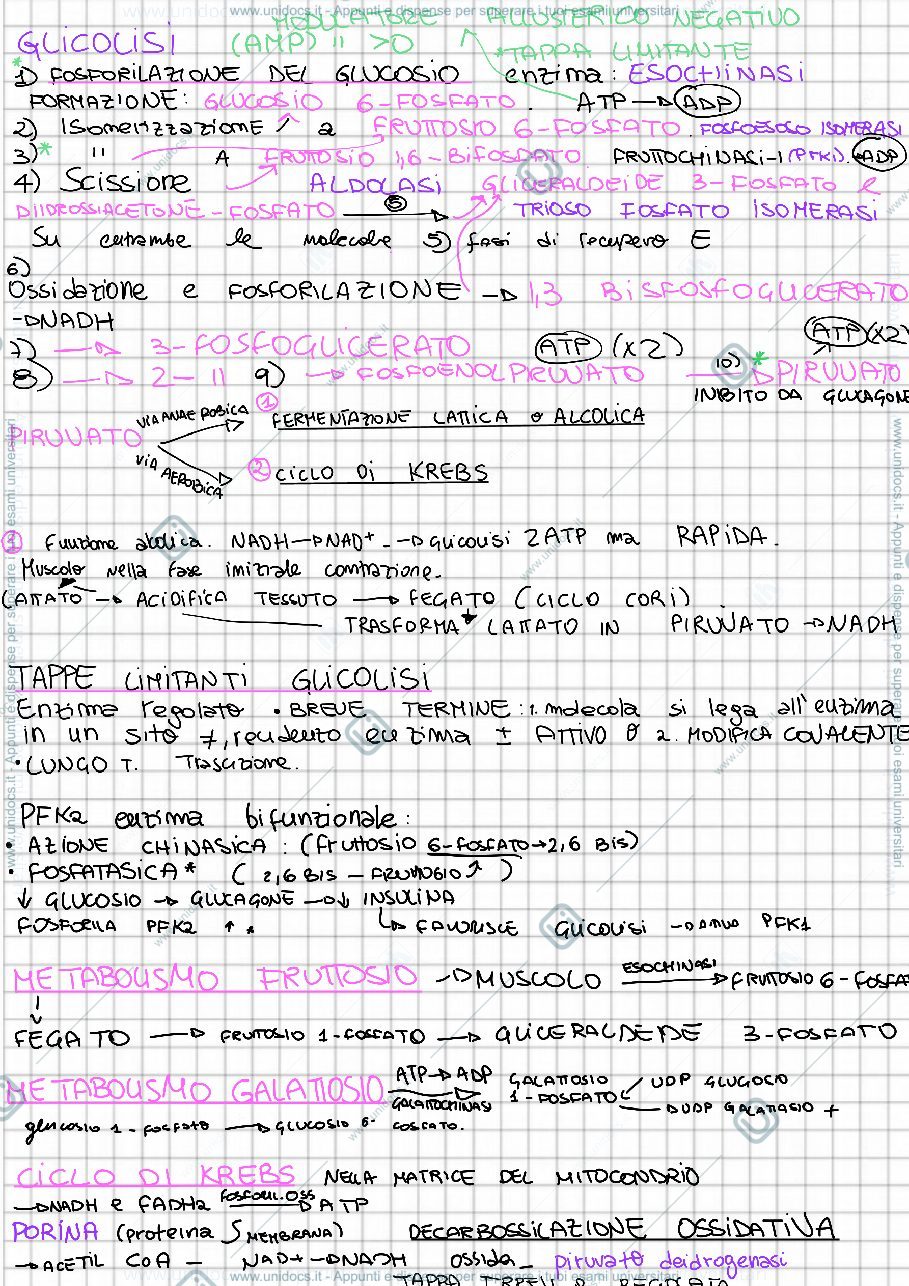 www.unidocs.it - Appunti e dispense per superare i tuoi esami universitari
MODULATORE ALLOSTERICO NEGATIVO
GLICOLISI (AMP) " >0 *TAPPA LIMITANTE
*1) FOSFORILAZIONE DEL GLUCOSIO enzima: ESOCHINASI
FORMAZIONE: GLUCOSIO 6-FOSFATO. ATP → ADP
2) ISOmerizzazionE a FRUTTOSIO 6-FOSFATO. FOSFOESOSO ISOMERASI
3)* " A FRUTTOSIO 1,6-BIFOSFATO. FRUTTOCHINASI-1 (PFK1). ADP
4) Scissione ALDOLASI GLICERALDEIDE 3-FOSFATO e
DIIDROSSIACETONE-FOSFATO 5 → TRIOSO FOSFATO ISOMERASI
Su entrambe le molecole 5) fasi di recupero E
6)
Ossidazione e FOSFORILAZIONE → 1,3 BISFOSFOGLICERATO
→ NADH
7) → 3-FOSFOGLICERATO ATP (x2) ATP (x2)
8) → 2- " 9) → FOSFOENOLPIRUVATO 10)* → PIRUVATO
INIBITO DA GLUCAGONE
PIRUVATO VIA ANAEROBICA 1 FERMENTAZIONE LATTICA o ALCOLICA
VIA AEROBICA 2 CICLO Di KREBS
1 NADH → NAD+ → glicolisi 2ATP ma RAPIDA.
Muscolo nella fase iniziale contrazione.
LATTATO → ACIDIFICA TESSUTO → FEGATO (CICLO CORI)
TRASFORMA LATTATO IN PIRUVATO → NADH
TAPPE LIMITANTI GLICOLISI
Enzima regolato • BREVE TERMINE: 1. molecola si lega all'enzima
in un sito ≠, rendendo enzima ± ATTIVO o 2. MODIFICA COVALENTE
• LUNGO T. Trascrizione.
PFK2 enzima bifunzionale:
• AZIONE CHINASICA: (fruttosio 6-FOSFATO → 2,6 Bis)
• FOSFATASICA* (2,6 BIS - FRUTTOSIO ↗)
↓ GLUCOSIO → GLUCAGONE → ↓ INSULINA
FOSFORILA PFK2 ↑ * ↳ FAVORISCE GLICOLISI → PFK1
METABOLISMO FRUTTOSIO → MUSCOLO ESOCHINASI → FRUTTOSIO 6-FOSFA
↓
FEGATO → FRUTTOSIO 1-FOSFATO → GLICERALDEIDE 3-FOSFATO
METABOLISMO GALATTOSIO ATP → ADP GALATTOCHINASI GALATTOSIO 1-FOSFATO UDP GLUCOSIO
→ UDP GALATTOSIO +
glucosio 1-fosfato → GLUCOSIO 6-FOSFATO.
CICLO DI KREBS NELLA MATRICE DEL MITOCONDRIO
→ NADH e FADH2 FOSFORIL.OSS → ATP
PORINA (proteina MEMBRANA) DECARBOSSILAZIONE OSSIDATIVA
→ ACETIL CoA - NAD+ → NADH ossida piruvato deidrogenasi
www.unidocs.it - Appunti e dispense per superare i tuoi esami universitari